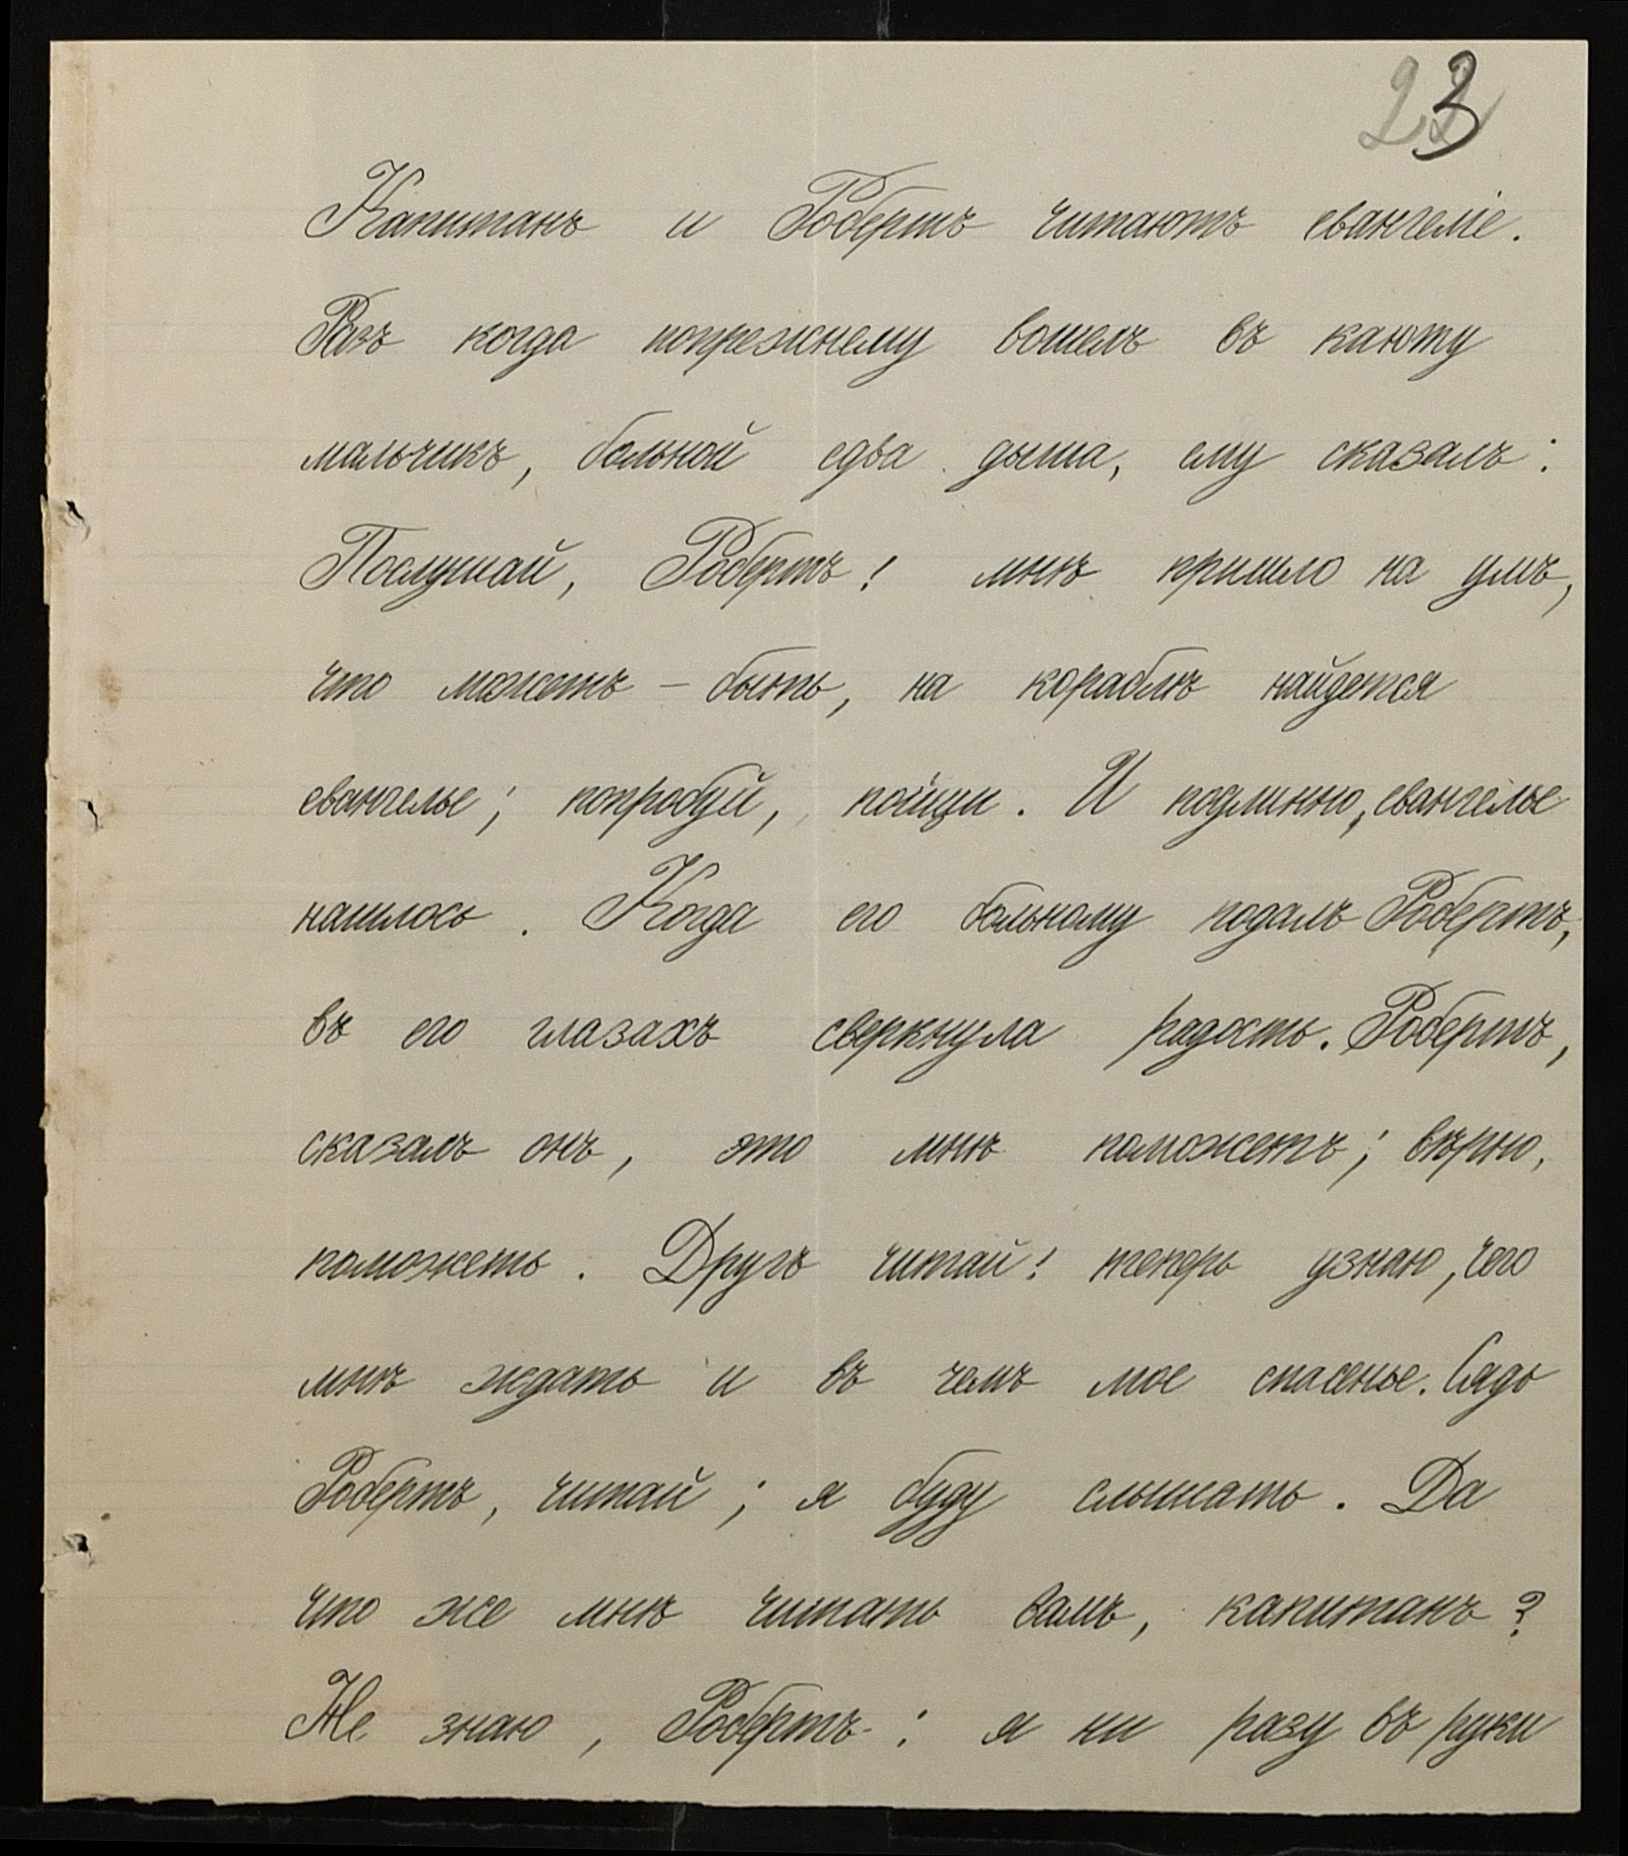 23
Капитанъ и Робертъ читаютъ евангеліе.
Разъ когда попрежнему вошелъ въ каюту
мальчикъ, больной едва дыша, ему сказалъ:
Послушай, Робертъ! мнѣ пришло на умъ,
что можетъ - быть, на кораблѣ найдется
евангелье; попробуй, поищи. И подлинно, евангелье
нашлось. Когда его больному подалъ Робертъ,
въ его глазахъ сверкнула радость. Робертъ,
сказалъ онъ, это мнѣ поможетъ; вѣрно,
поможетъ. Другъ читай! теперь узнаю, чего
мнѣ ждать и въ чемъ мое спасенье. Сядь
Робертъ, читай; я буду слышать. Да
что же мнѣ читать вамъ, капитанъ?
Не знаю, Робертъ: я ни разу въ руки